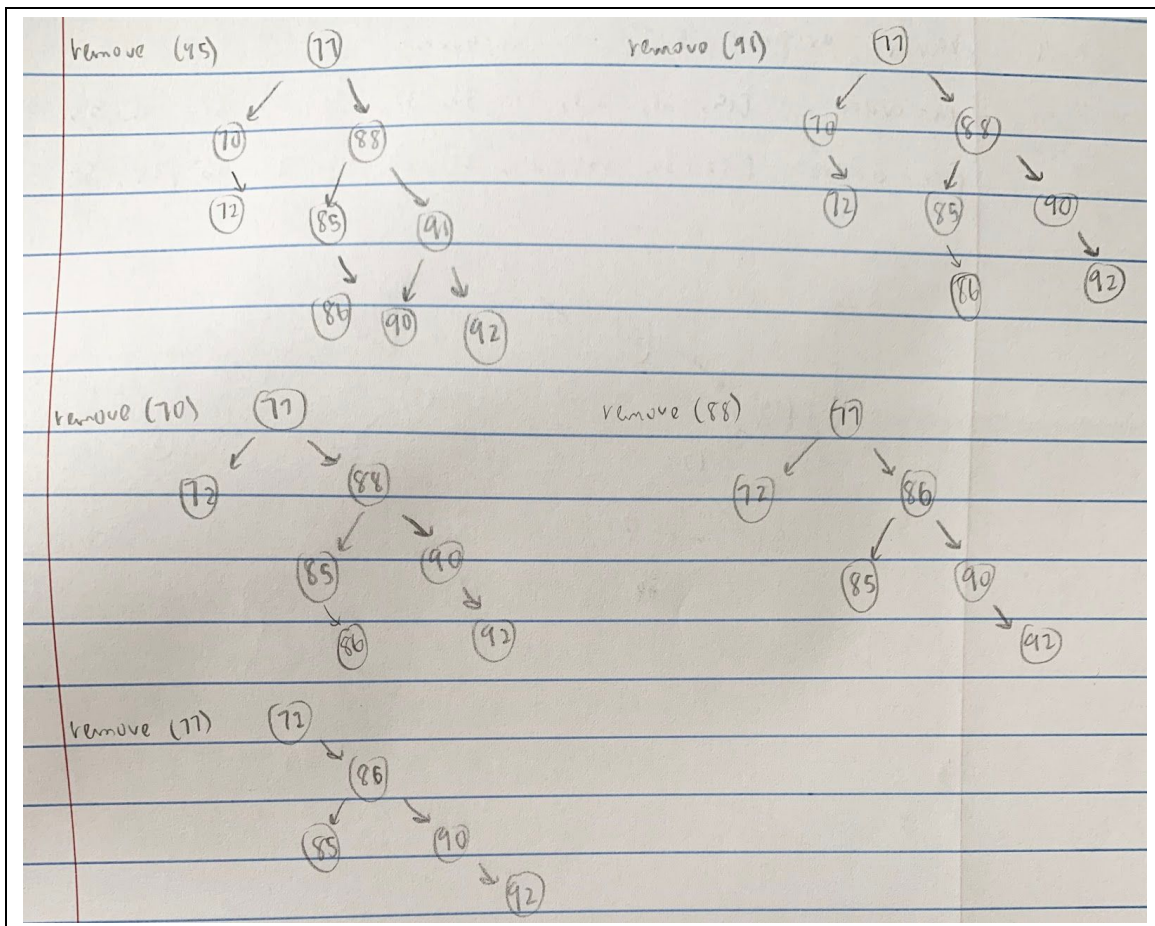 remove (95) 77
70 88
72 85 91
86 90 92
remove (91) 77
70 88
72 85 90
86 92
remove (70) 77
72 88
85 90
86 92
remove (88) 77
72 86
85 90
92
remove (77) 72
86
85 90
92